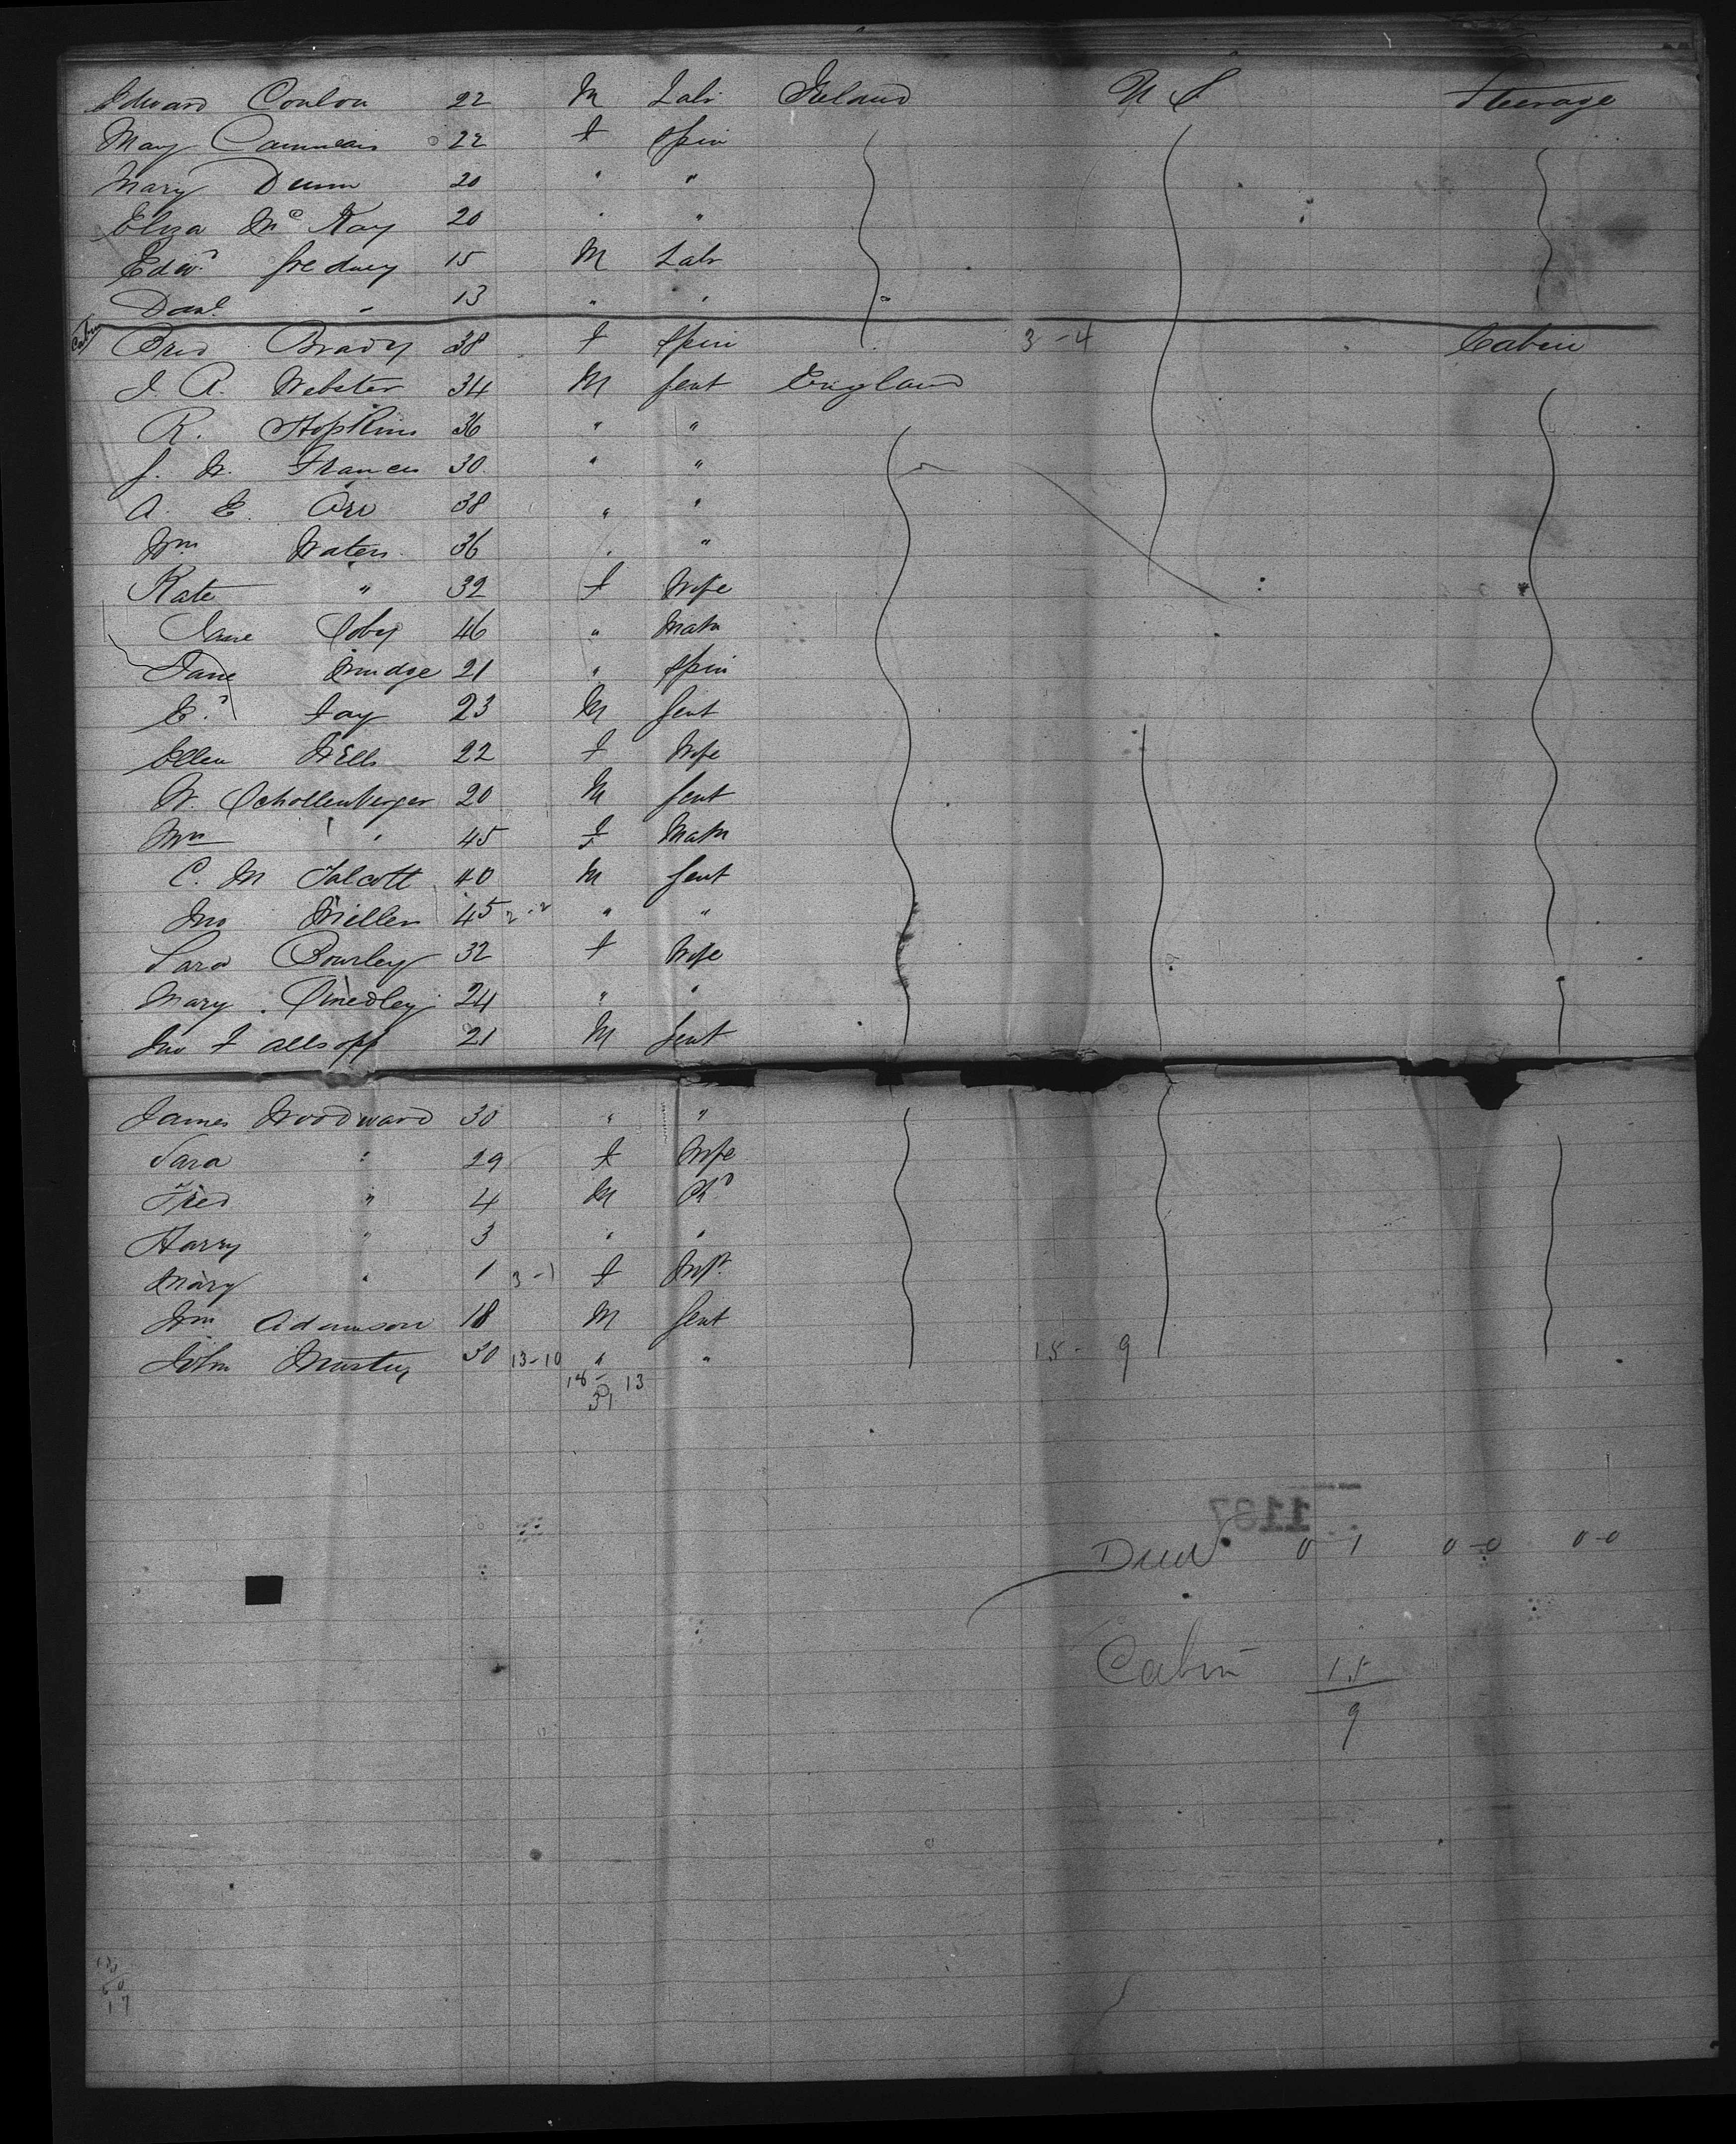 Edward Conlon 22 M Labr Ireland U S Steerage
Mary 22 F Spin
Mary Dunn 20 " "
Eliza Mc Kay 20 " "
Edwd 15 M Labr
Danl " 13 " "
Cabin
Brid Brady 38 F Spin 3-4 Cabin
J. A. Webster 34 M Gent England
R. Hopkins 36 " "
J. W. Francis 30 " "
A. E. 38 " "
Wm Waters 36 " "
Kate " 32 F Wife
Jane 46 " Matn
Jane 21 " Spin
E. 23 M Gent
Ellen Wells 22 F Wife
W. Schollenberger 20 M Gent
" 45 F Matn
C. M Talcott 40 M Gent
Jno Miller 45 2-2 " "
Sara Bourley 32 F Wife
Mary Smedley 24 " "
Jno F Allsopp 21 M Gent
James Woodward 30 " "
Sara " 29 F Wife
Fred " 4 M Chd
Harry " 3 " "
Mary " 1 3-1 F Inft
Wm Adamson 18 M Gent
John 30 13-10 " " 15-9
18-13
31
1187
Died 0 1 0-0 0-0
Cabin 15
9